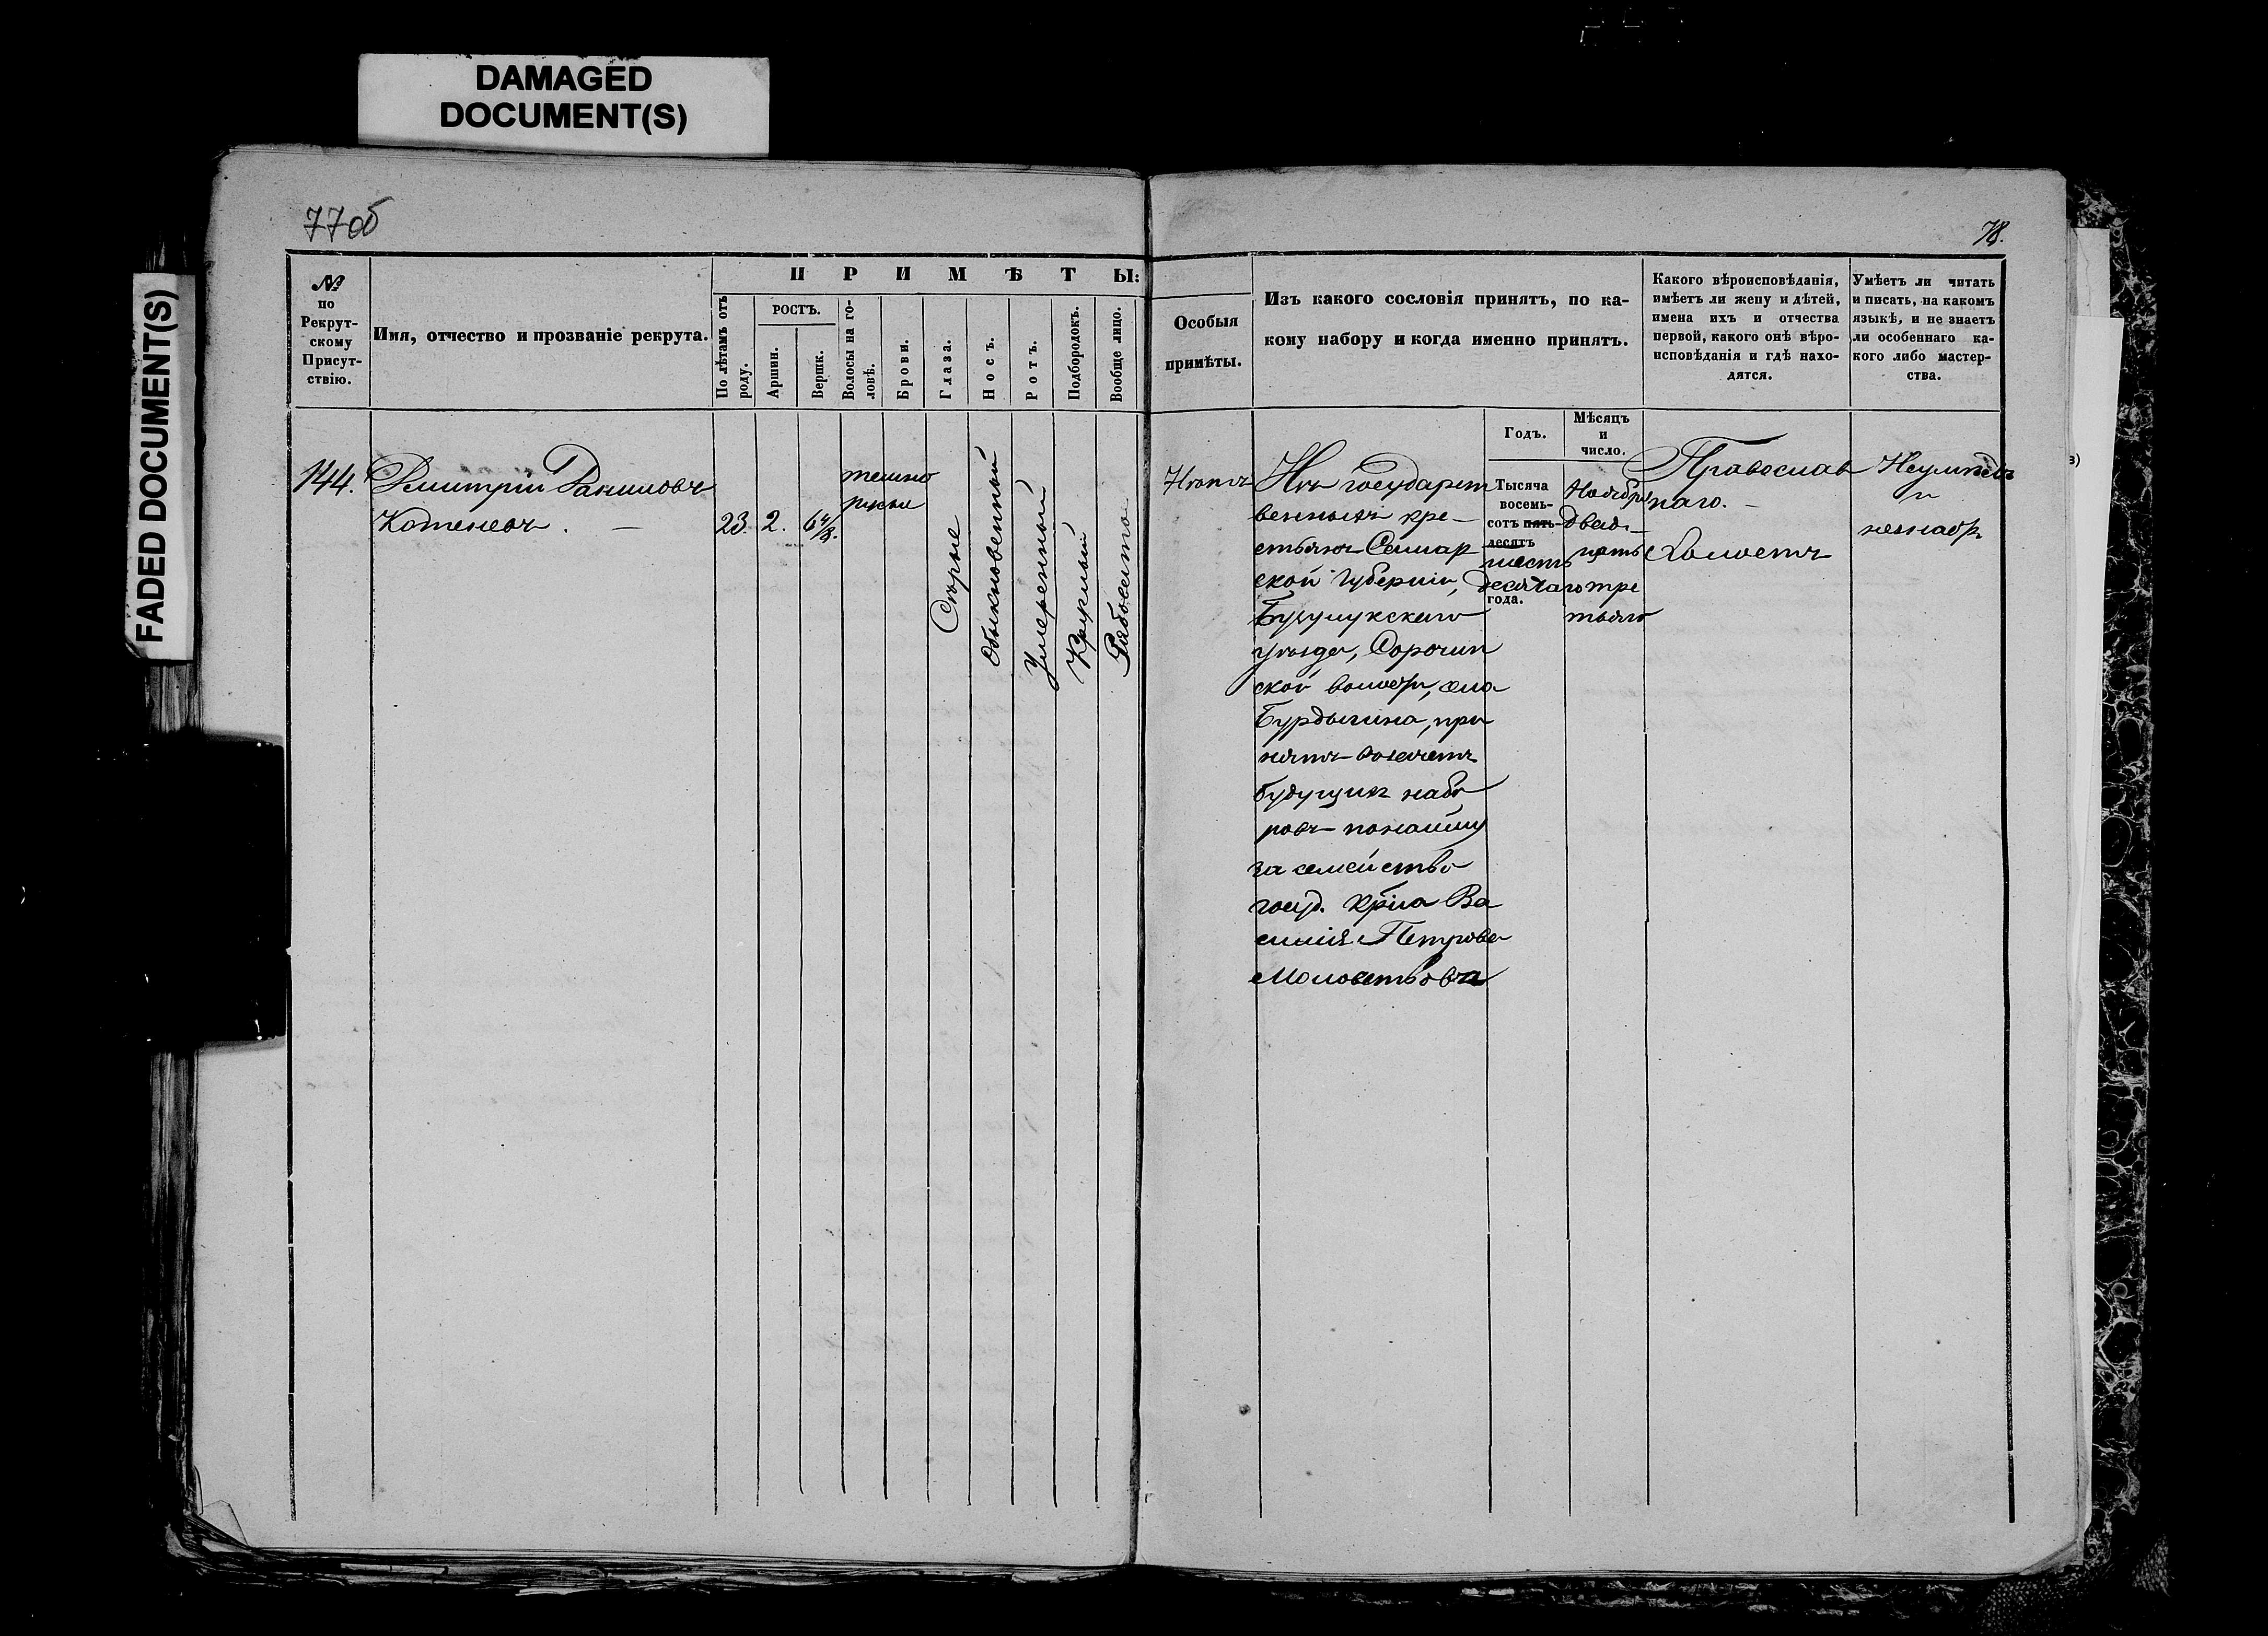 DAMAGED
DOCUMENT(S)
FADED DOCUMENT(S)
77 об
78.
№
по
Рекрут-
скому
Присут-
ствію.
Имя, отчество и прозваніе рекрута.
ПРИМѢТЫ:
По лѣтамъ отъ
роду.
РОСТЪ.
Аршин.
Вершк.
Волосы на го-
ловѣ.
Брови.
Глаза.
Носъ.
Ротъ.
Подбородокъ.
Вообще лицо.
Особыя
примѣты.
Изъ какого сословія принятъ, по ка-
кому набору и когда именно принятъ.
Годъ.
Мѣсяцъ
и
число.
Какого вѣроисповѣданія,
имѣетъ ли жену и дѣтей,
имена ихъ и отчества
первой, какого онѣ вѣро-
исповѣданія и гдѣ нахо-
дятся.
Умѣетъ ли читать
и писать, на какомъ
языкѣ, и не знаетъ
ли особеннаго ка-
кого либо мастер-
ства.
144.
Дмитрій Даниловъ
Котеневъ. —
23.
2.
6 4/8.
темно
русые
Сѣрые
Обыкновенный
Умѣренный
Круглый
Рябовато
Нѣтъ
Изъ государст
венныхъ кре-
стьянъ Самар
ской губерніи,
Бузулукскаго
уѣзда, Сорочин
ской волости, села
Бурдыгина, при
нятъ взачетъ
будущихъ набо
ровъ по найму
за семейство
госуд. кр-на Ва
силія Петрова
Тысяча
восемь-
сотъ пять-
десятъ
шесть
десятаго
года.
Ноября
двад-
цать
тре
тьяго
Православ
наго. —
Холостъ
Неумѣетъ
и
незнаетъ